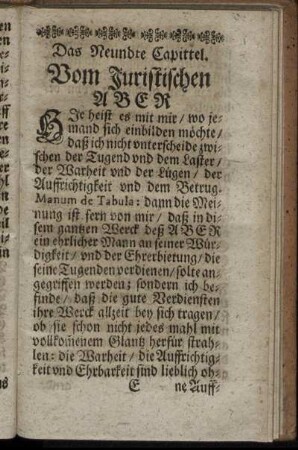 Das Neundte Capittel.
Vom Juristischen
ABER
HJe heist es mit mir / wo je-
mand sich einbilden möchte /
daß ich nicht unterscheide zwi-
schen der Tugend vnd dem Laster /
der Warheit vnd der Lügen / der
Auffrichtigkeit vnd dem Betrug.
Manum de Tabula: dann die Mei-
nung ist fern von mir / daß in di-
sem gantzen Werck deß ABER
ein ehrlicher Mann an seiner Wür-
digkeit / vnd der Ehrerbietung / die
seine Tugenden verdienen / solte an-
gegriffen werden; sondern ich be-
finde / daß die gute Verdiensten
ihre Werck allzeit bey sich tragen /
ob sie schon nicht jedes mahl mit
vollkom̃enem Glantz herfür strah-
len: die Warheit / die Auffrichtig-
keit vnd Ehrbarkeit sind lieblich oh-
E ne Auff-